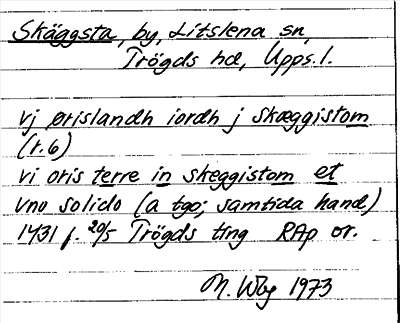 Skäggsta, by, Litslena sn,
Trögds hd, Upps.l.
vj ørislandh iordh j skæggistom
(r.6)
vi oris terre in skeggistom et
vno solido (a tgo; samtida hand)
1431 f. 20/5 Trögds ting RAp or.
M. Wbg 1973